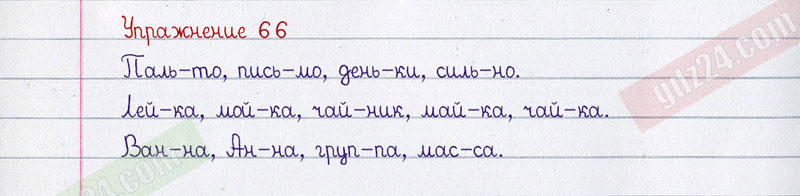 Упражнение 66
Паль-то, пись-мо, день-ки, силь-но.
Лей-ка, мой-ка, чай-ник, май-ка, чай-ка.
Ван-на, Ан-на, груп-па, мас-са.
gdz24.com
dz24.com